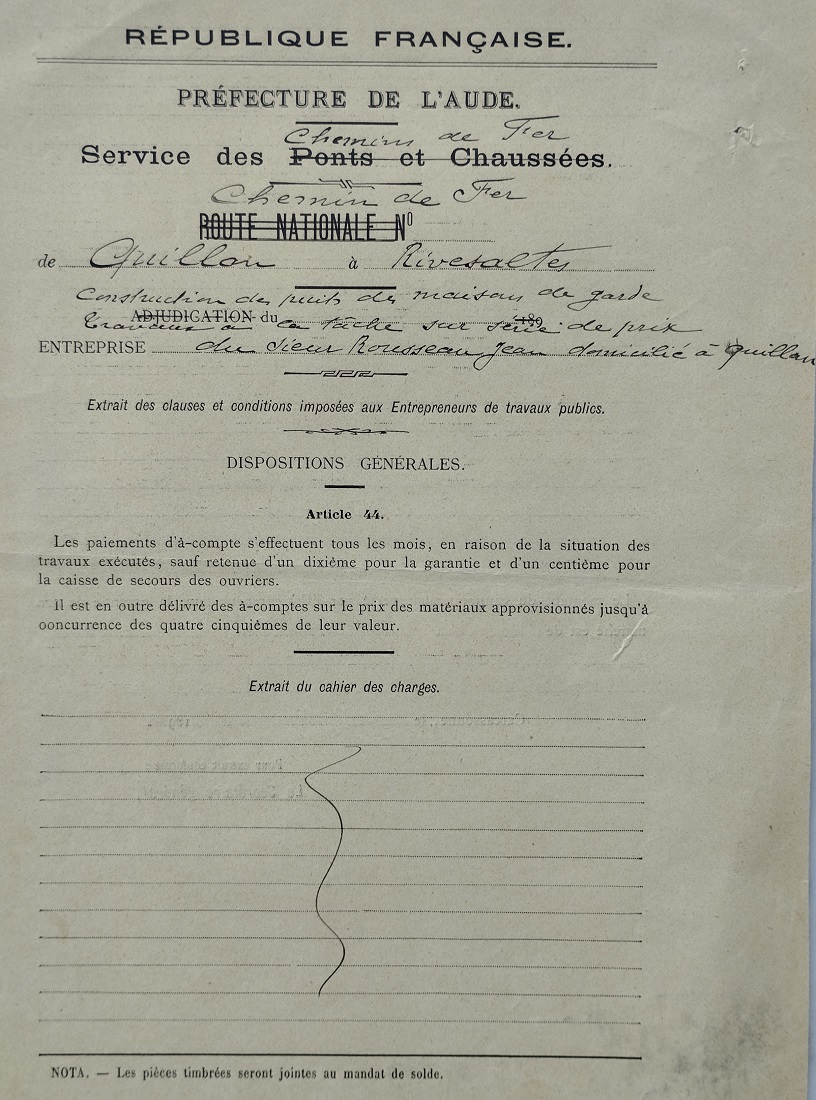 RÉPUBLIQUE FRANÇAISE.
PRÉFECTURE DE L'AUDE.
Chemins de Fer
Service des Ponts et Chaussées.
Chemin de Fer
ROUTE NATIONALE N°
de Quillan à Rivesaltes
Construction des puits des maisons de garde
ADJUDICATION du 189
Travaux à la tâche sur série de prix
ENTREPRISE du Sieur Rousseau Jean domicilié à Quillan
Extrait des clauses et conditions imposées aux Entrepreneurs de travaux publics.
DISPOSITIONS GÉNÉRALES.
Article 44.
Les paiements d'à-compte s'effectuent tous les mois, en raison de la situation des
travaux exécutés, sauf retenue d'un dixième pour la garantie et d'un centième pour
la caisse de secours des ouvriers.
Il est en outre délivré des à-comptes sur le prix des matériaux approvisionnés jusqu'à
concurrence des quatre cinquièmes de leur valeur.
Extrait du cahier des charges.
NOTA. — Les pièces timbrées seront jointes au mandat de solde.